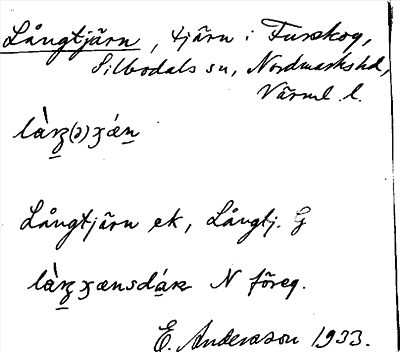 Långtjärn, tjärn i Furskog,
Silbodals sn, Nordmarks hd,
Värml. l.
Långtjärn ek, Långtj. G
N föreg.
E. Andersson 1933.